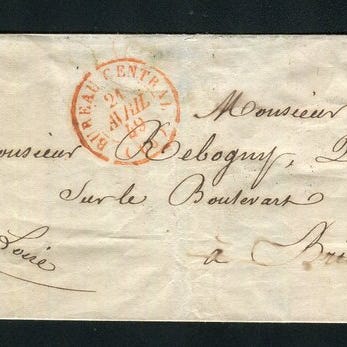 BUREAU CENTRAL
21
AVRIL
49
Monsieur
onsieur Rebogny,
Sur le Boulevart
Loire à Bri